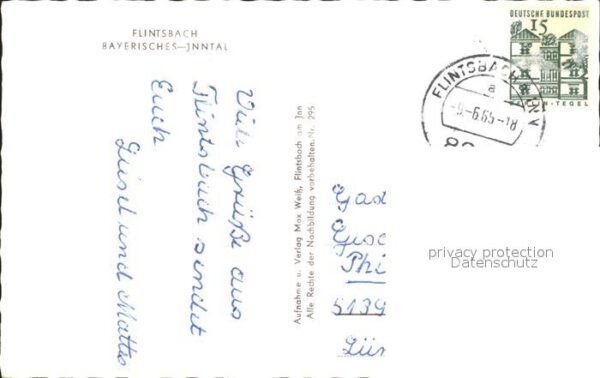 FLINTSBACH
BAYERISCHES—JNNTAL
Viele Grüße aus
Flintsbach sendet
Euch
Liesel und Mattes
Aufnahme u. Verlag Max Weiß, Flintsbach am Jnn
Alle Rechte der Nachbildung vorbehalten. Nr. 295
DEUTSCHE BUNDESPOST
15
N-TEGEL
FLINTSBACH
a
-6.-9.65-18
Phi
5139
privacy protection
Datenschutz